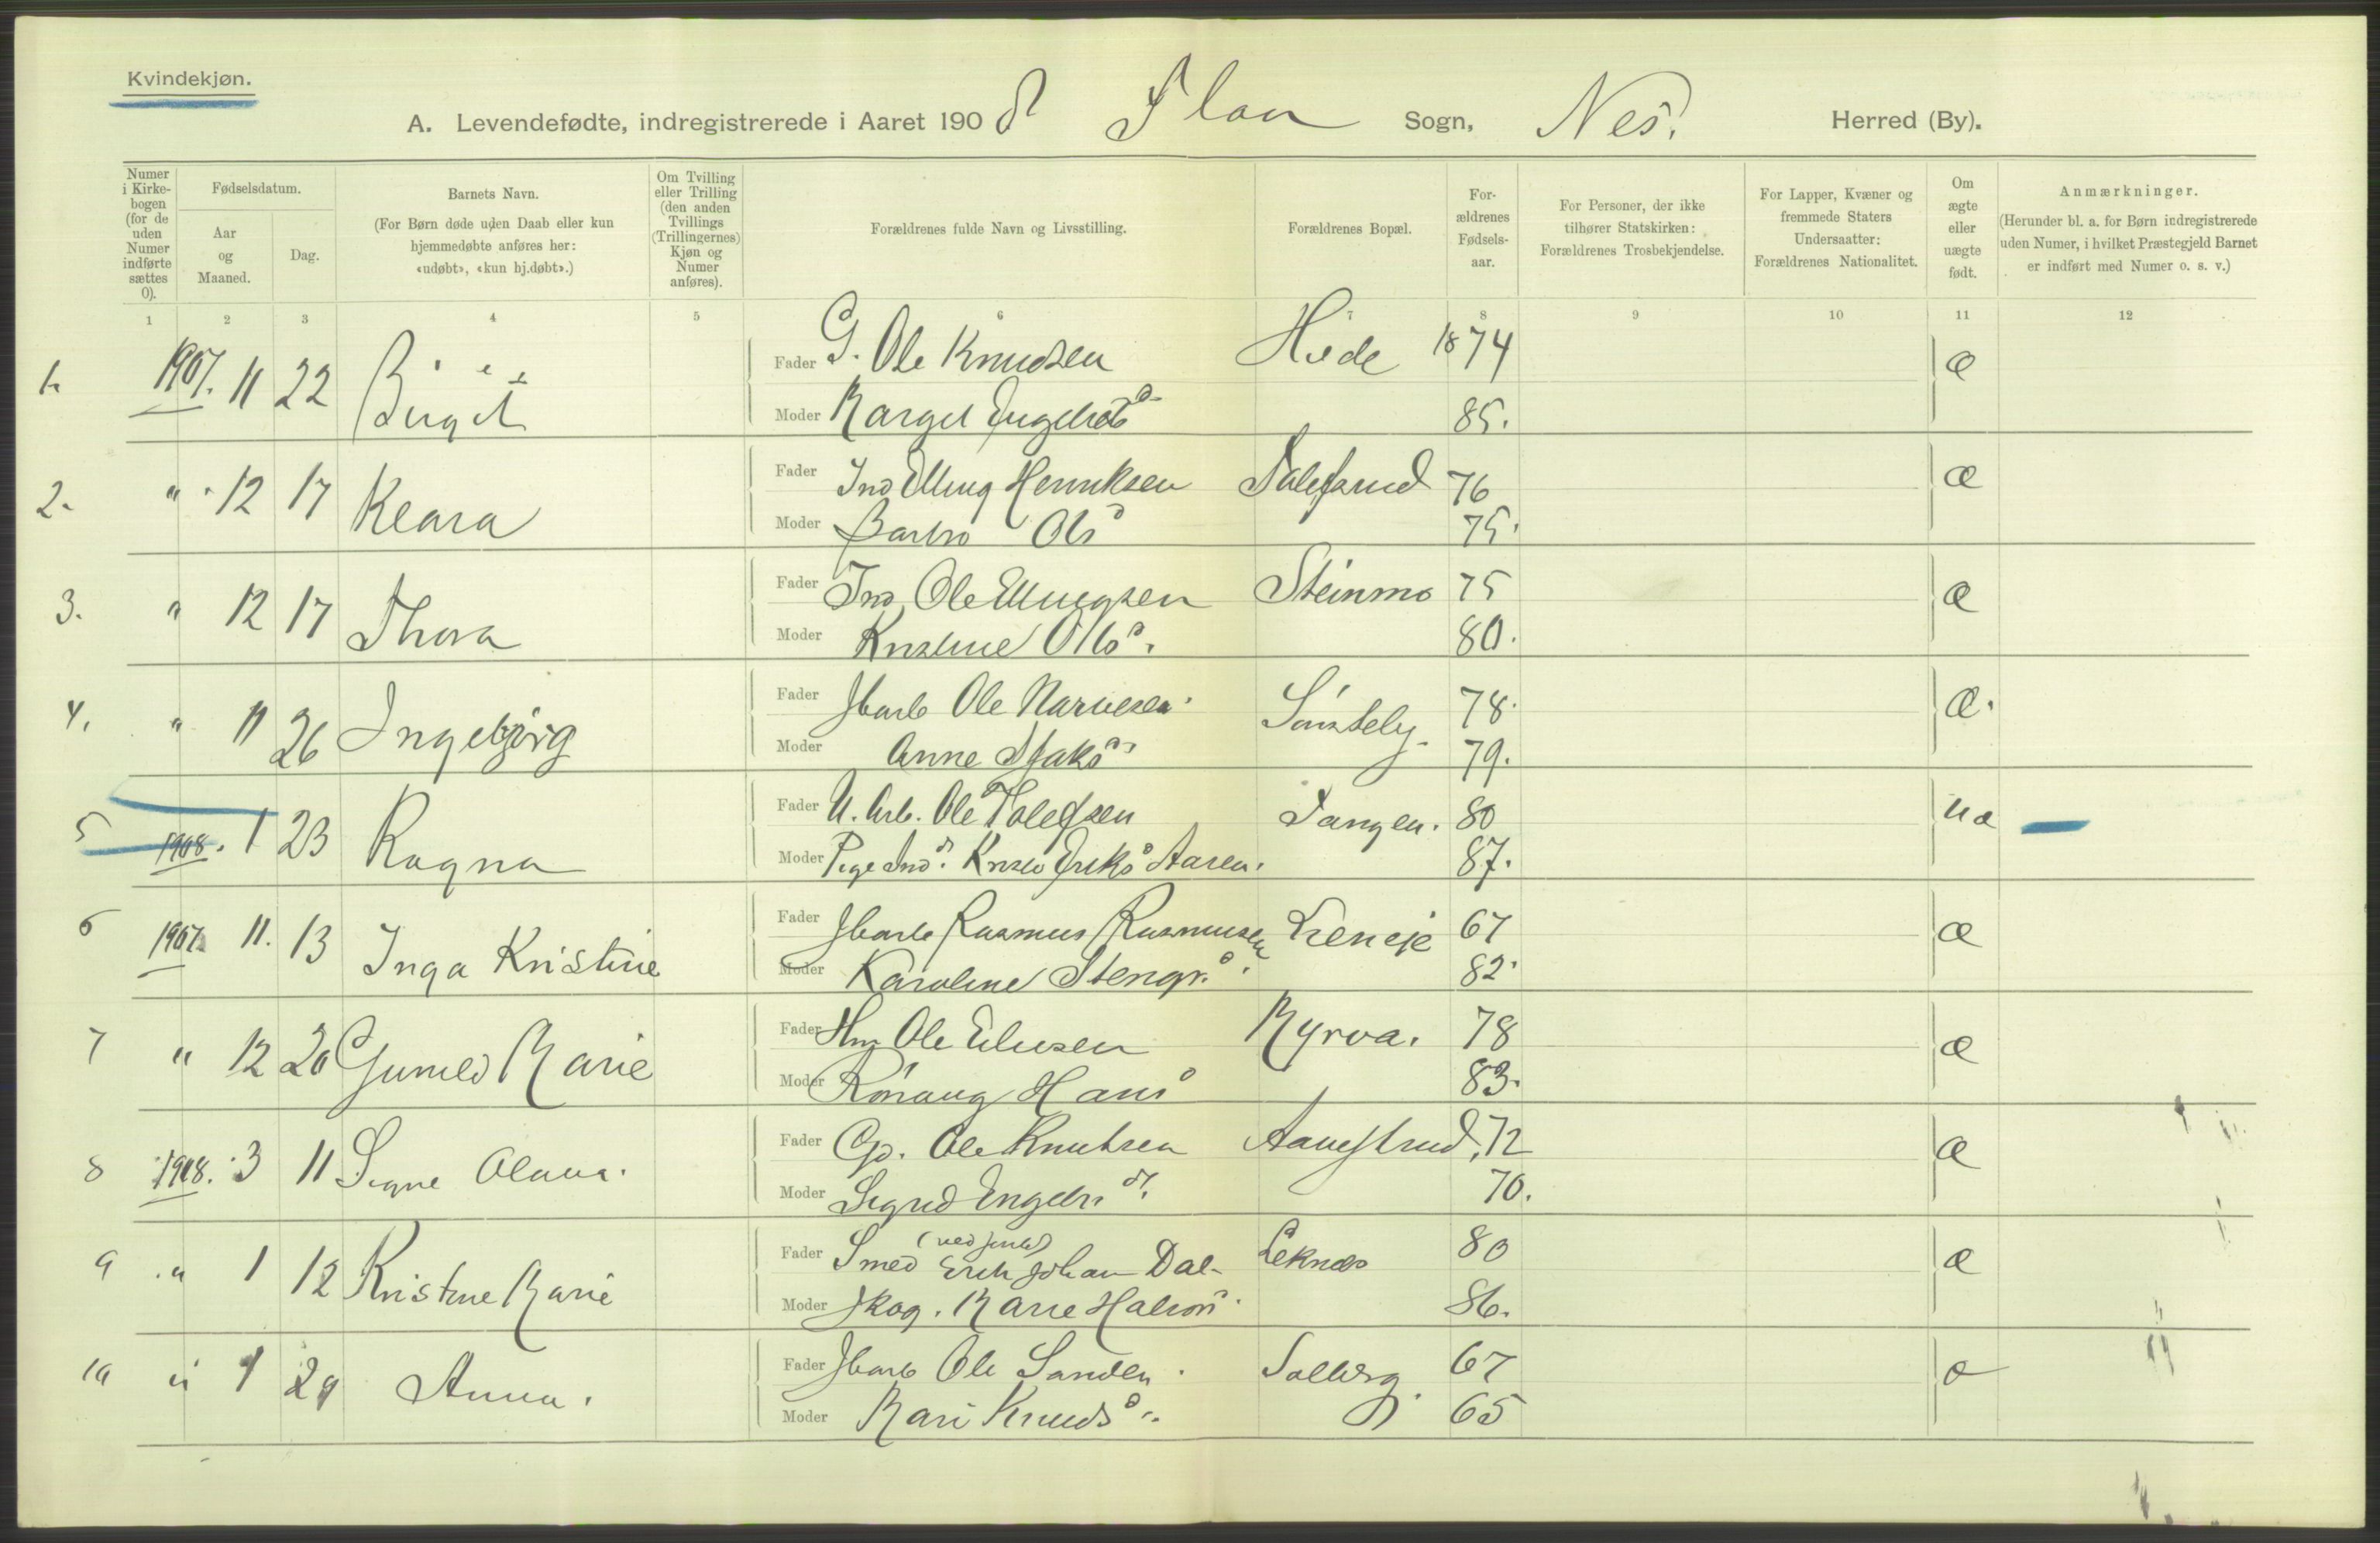 Kvindekjøn.
A. Levendefødte, indregistrerede i Aaret 1908 Flaa Sogn, Nes. Herred (By).
Numer i Kirkebogen (for de uden Numer indførte sættes 0).
Fødselsdatum.
Aar og Maaned.
Dag.
Barnets Navn.
(For Børn døde uden Daab eller kun hjemmedøbte anføres her: «udøbt», «kun hj.døbt».)
Om Tvilling eller Trilling (den anden Tvillings (Trillingernes) Kjøn og Numer anføres).
Forældrenes fulde Navn og Livsstilling.
Forældrenes Bopæl.
For-ældrenes Fødsels-aar.
For Personer, der ikke tilhører Statskirken: Forældrenes Trosbekjendelse.
For Lapper, Kvæner og fremmede Staters Undersaatter: Forældrenes Nationalitet.
Om ægte eller uægte født.
Anmærkninger.
(Herunder bl. a. for Børn indregistrerede uden Numer, i hvilket Præstegjeld Barnet er indført med Numer o. s. v.)
1 2 3 4 5 6 7 8 9 10 11 12
1. 1907. 11 22 Birgit Fader G. Ole Knudsen Hide 1874 æ
Moder Margit 85.
2. " 12 17 Klara Fader Ind Elling Henriksen 76 æ
Moder Barbro Ols 75.
3. " 12 17 Thora Fader Ind. Ole Ellingsen Steinmo 75 æ
Moder Kristine 80.
4. " 11 26 Ingebjørg Fader Jbarb Ole Narvesen 78. æ.
Moder Anne 79.
5 1908. 1 23 Ragna Fader U. Arb. Ole Tolefsen Tangen. 80 uæ
Moder Pige Ind. 87.
6 1907. 11. 13 Inga Kristine Fader Jbarb Rasmus Rasmussen 67 æ
Moder Karoline 82
7 " 12 20 Gunild Marie Fader Ole Myrva. 78 æ
Moder Rönaug Hans 83.
8 1908. 3 11 Signe Fader Gp. Ole Knutsen 72 æ
Moder Sigrid 70.
9 " 1 12 Kristine Marie Fader Smed Erik Johan Dal- Leknes 80 æ
Moder skog. Marie 86.
10 " 1 29 Anna. Fader Jbarb Ole Solberg 67 æ
Moder Mari Knuds 65